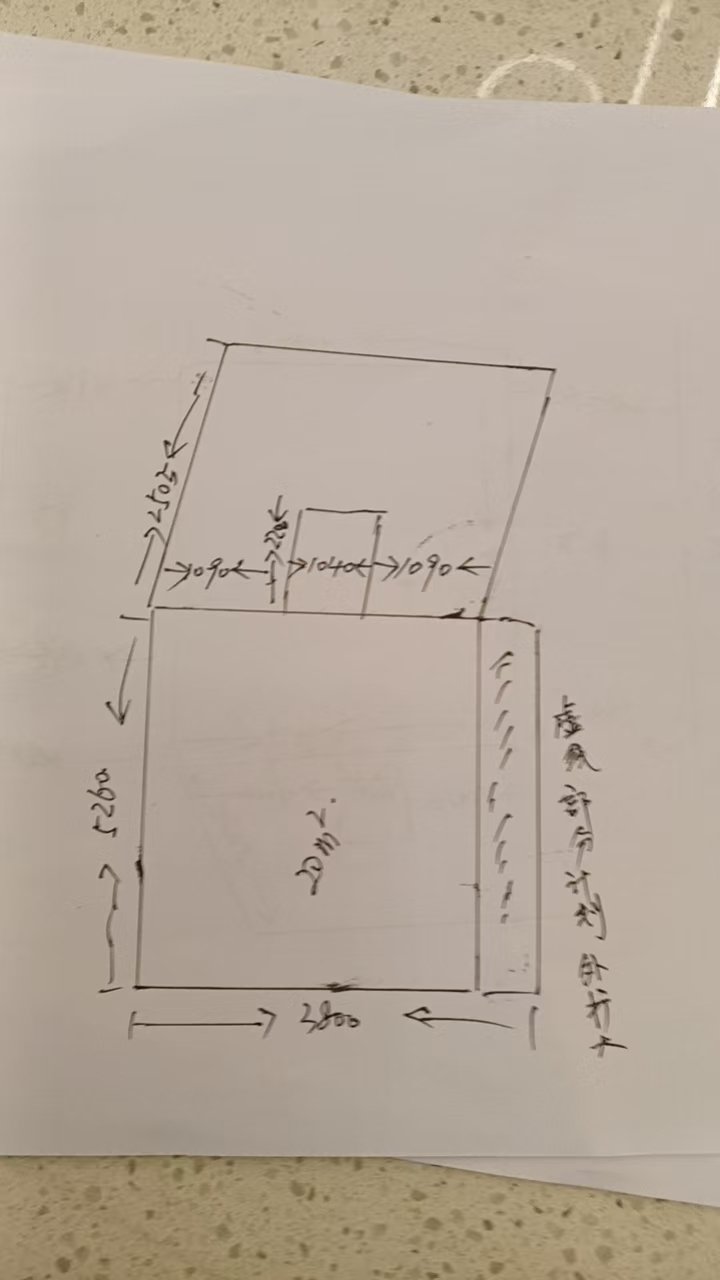 2505
1090
220
1040
1090
5260
20m².
3800
虚线部分计划外扩大